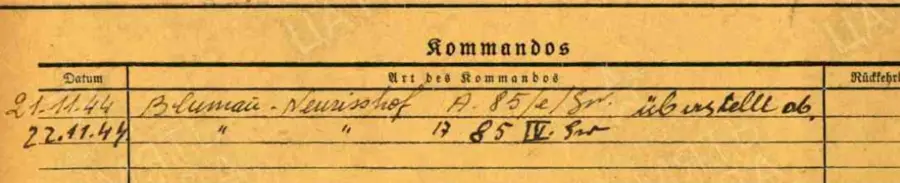 Kommandos
Datum Art des Kommandos Rückkehr
21.11.44 Blumau-Neurisshof A. 85/e/Gw. überstellt ab.
22.11.44 " " 17 85 IV. Gw